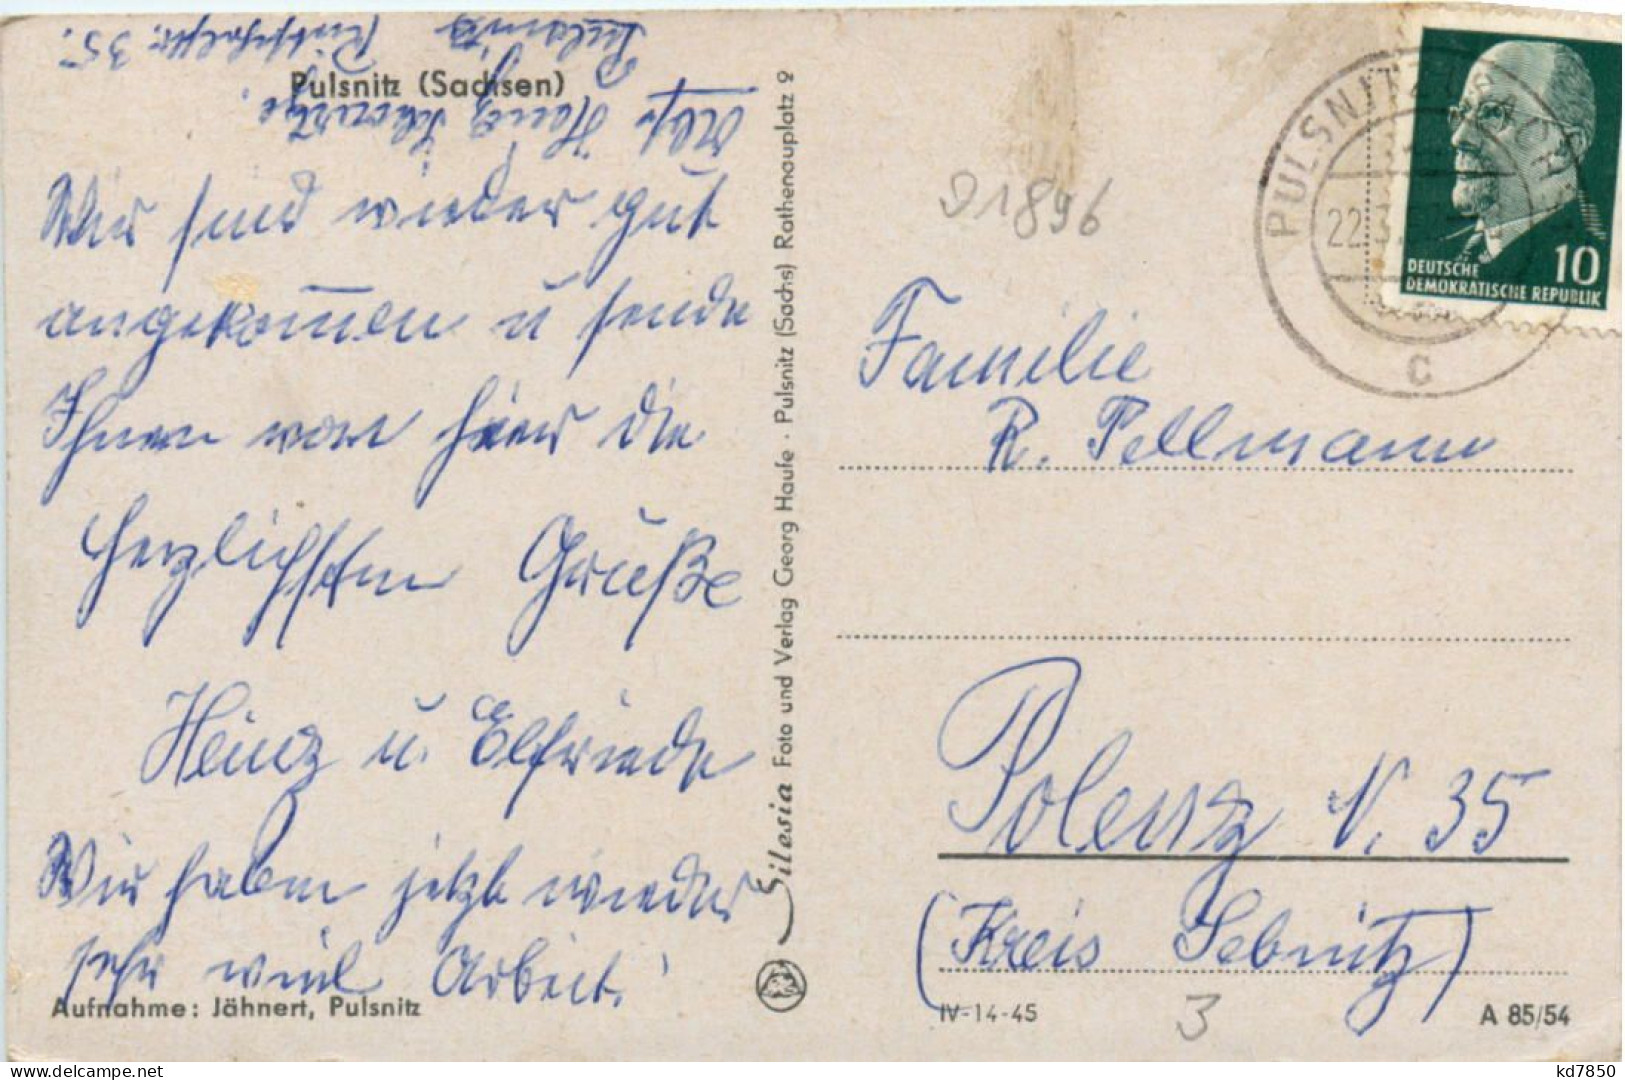 Pulsnitz (Sachsen)
Abs. Heinz
Pulsnitz
35.
Wir sind wieder gut
angekommen u sende
Ihnen von hier die
herzlichsten Grüße
Heinz u. Elfriede
Wir haben jetzt wieder
sehr viel Arbeit!
Aufnahme: Jähnert, Pulsnitz
Silesia Foto und Verlag Georg Haufe · Pulsnitz (Sachs) Rathenauplatz 2
91896
PULSNITZ
22.3.
c
10
DEUTSCHE
DEMOKRATISCHE REPUBLIK
Familie
R. Pellmann
Polenz N. 35
(Kreis Sebnitz)
IV-14-45
3
A 85/54
kd7850